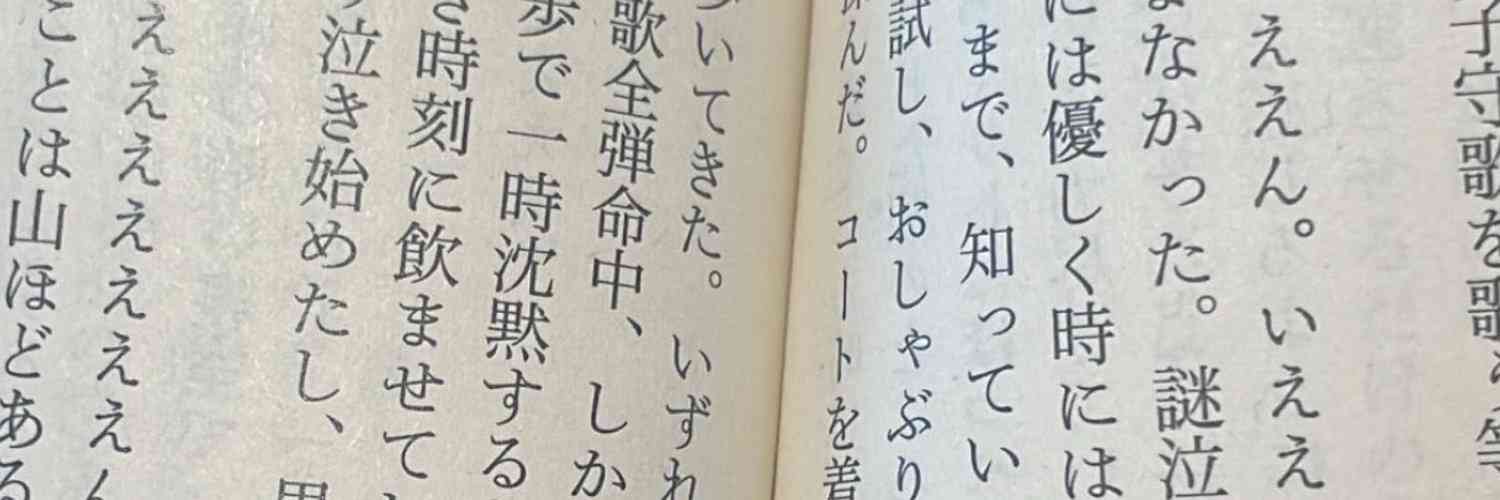 子守歌を歌
ええん。いええ
なかった。謎泣
には優しく時には
まで、知ってい
試し、おしゃぶり
んだ。コートを着
いてきた。いずれ
歌全弾命中、しか
歩で一時沈黙する
き時刻に飲ませて
泣き始めたし、
ええええええん
ことは山ほどある